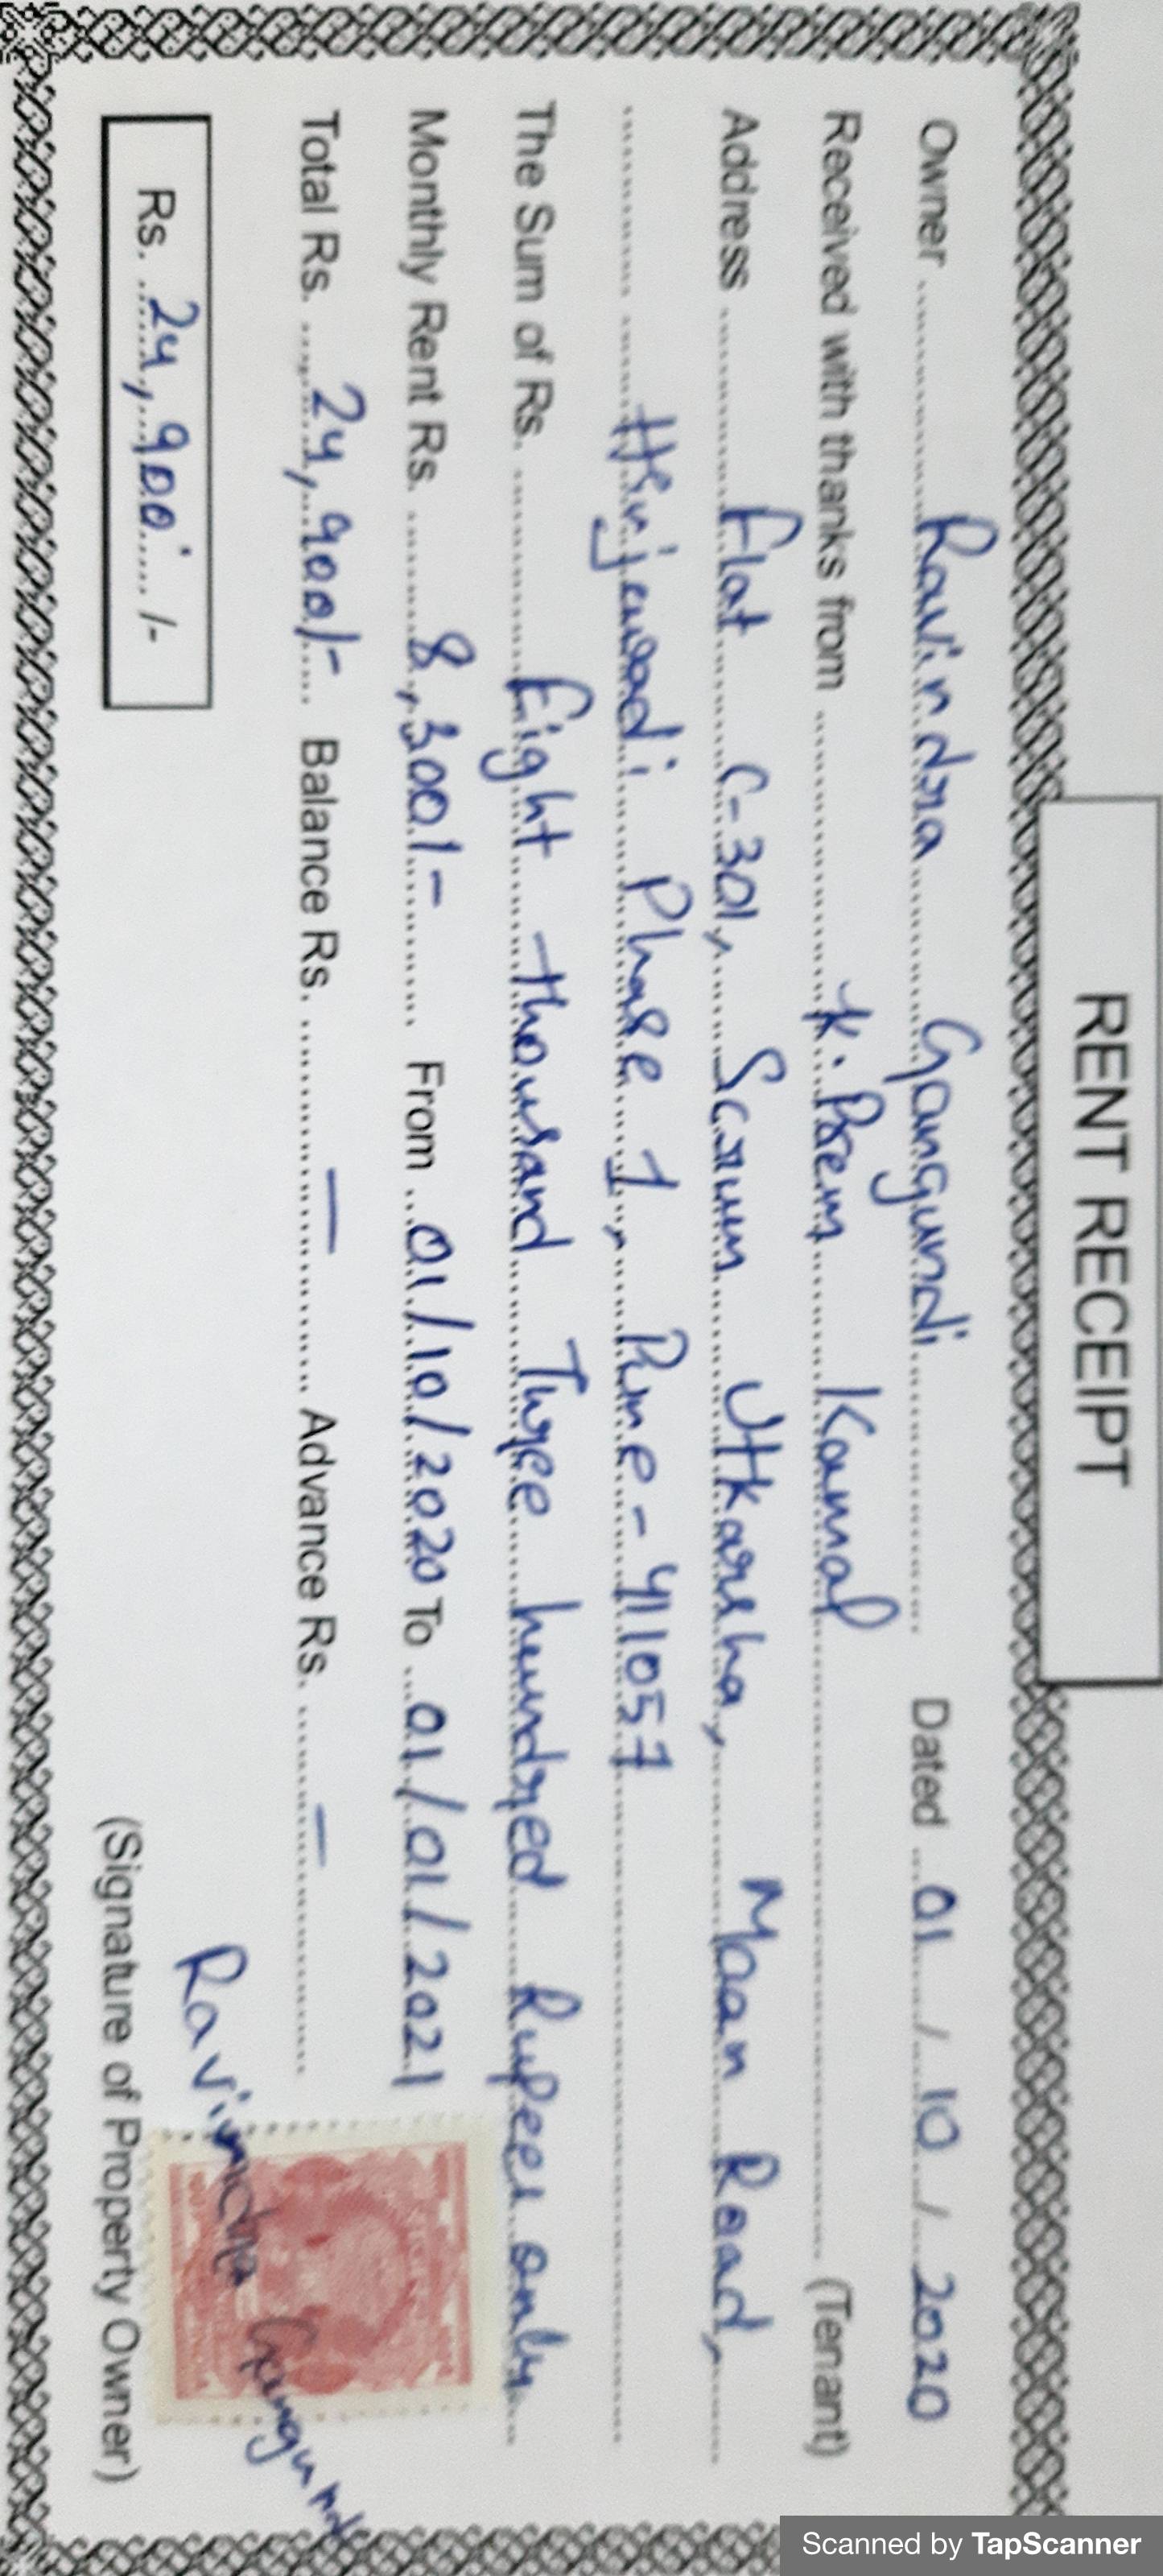 RENT RECEIPT
Owner Ravindra Gangundi Dated 01 / 10 / 2020
Received with thanks from K. Prem Kamal (Tenant)
Address Flat C-301, Scrum Utkarsha, Maan Road,
Hinjewadi Phase 1, Pune - 411057
The Sum of Rs. Eight thousand Three hundred Rupees only
Monthly Rent Rs. 8,300/- From 01/10/2020 To 01/01/2021
Total Rs. 24,900/- Balance Rs. — Advance Rs. —
Rs. 24,900 /-
Ravindra Gangundi
(Signature of Property Owner)
Scanned by TapScanner